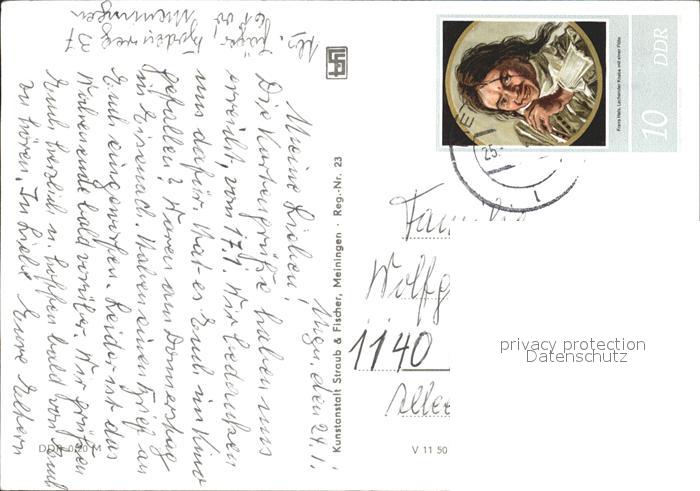 Mngn, den 24.1.
Meine Lieben!
Die Kartengrüße haben uns
erreicht, vom 17.1. Wir bedanken
uns dafür. Hat es Euch im Kino
gefallen? Waren am Donnerstag
in Eisenach. Haben einen Brief an
Euch eingeworfen. Leider ist das
Wochenende bald vorüber. Wir grüßen
Euch herzlich u. hoffen bald von Euch
zu hören. In Liebe Eure Eltern
Meiningen
Kunstanstalt Straub & Fischer, Meiningen · Reg.-Nr. 23
DDR 0,20 M
V 11 50
Frans Hals, Lachender Knabe mit einer Flöte
10 DDR
25.
Familie
Wolfg
1140
Allee
privacy protection
Datenschutz